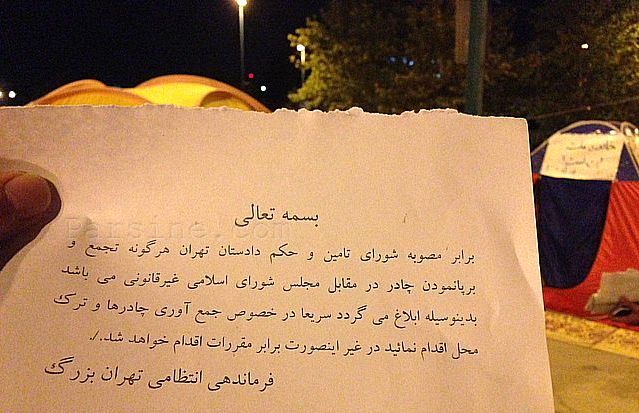 بسمه تعالی
برابر مصوبه شورای تامین و حکم دادستان تهران هرگونه تجمع و
برپانمودن چادر در مقابل مجلس شورای اسلامی غیرقانونی می باشد
بدینوسیله ابلاغ می گردد سریعا در خصوص جمع آوری چادرها و ترک
محل اقدام نمائید در غیر اینصورت برابر مقررات اقدام خواهد شد./.
فرماندهی انتظامی تهران بزرگ
Parsine.